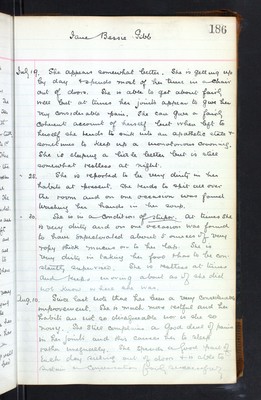 186
Jane Bessie Pibb
July 19. She appears somewhat better. She is getting up
by day & spends most of her time in a chair
out of doors. She is able to get about fairly
well but at times her joints appear to give her
very considerable pain. She can give a fairly
coherent account of herself but when left to
herself she tends to sink into an apathetic state &
sometimes to keep up a monotonous
She is sleeping a little better but is still
somewhat restless at night.
" 25. She is reported to be very dirty in her
habits at present. She tends to spit all over
the room and on one occasion was found
washing her hands in her soup.
" 30. She is in a condition of stupor. At times she
is very dirty and on one occasion was found
to have expectorated about 5 ounces of very
ropy thick mucus on to her lap. She is
very dirty in taking her food & has to be con-
stantly supervised. She is restless at times
and keeps moving about as if she did
not know where she was.
Aug. 10. Since last note there has been a very considerable
improvement. She is much more restful and her
habits are not so disagreeable nor is she so
noisy. She still complains a good deal of pains
in her joints and this causes her to sleep
rather irregularly. She spends a good part of
each day sitting out of doors & is able to
conversation fairly